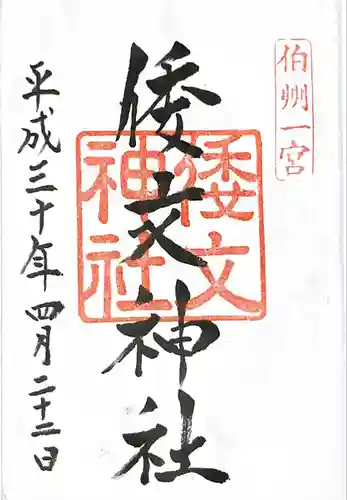 伯州一宮
倭文神社
倭文神社
平成三十年四月二十二日